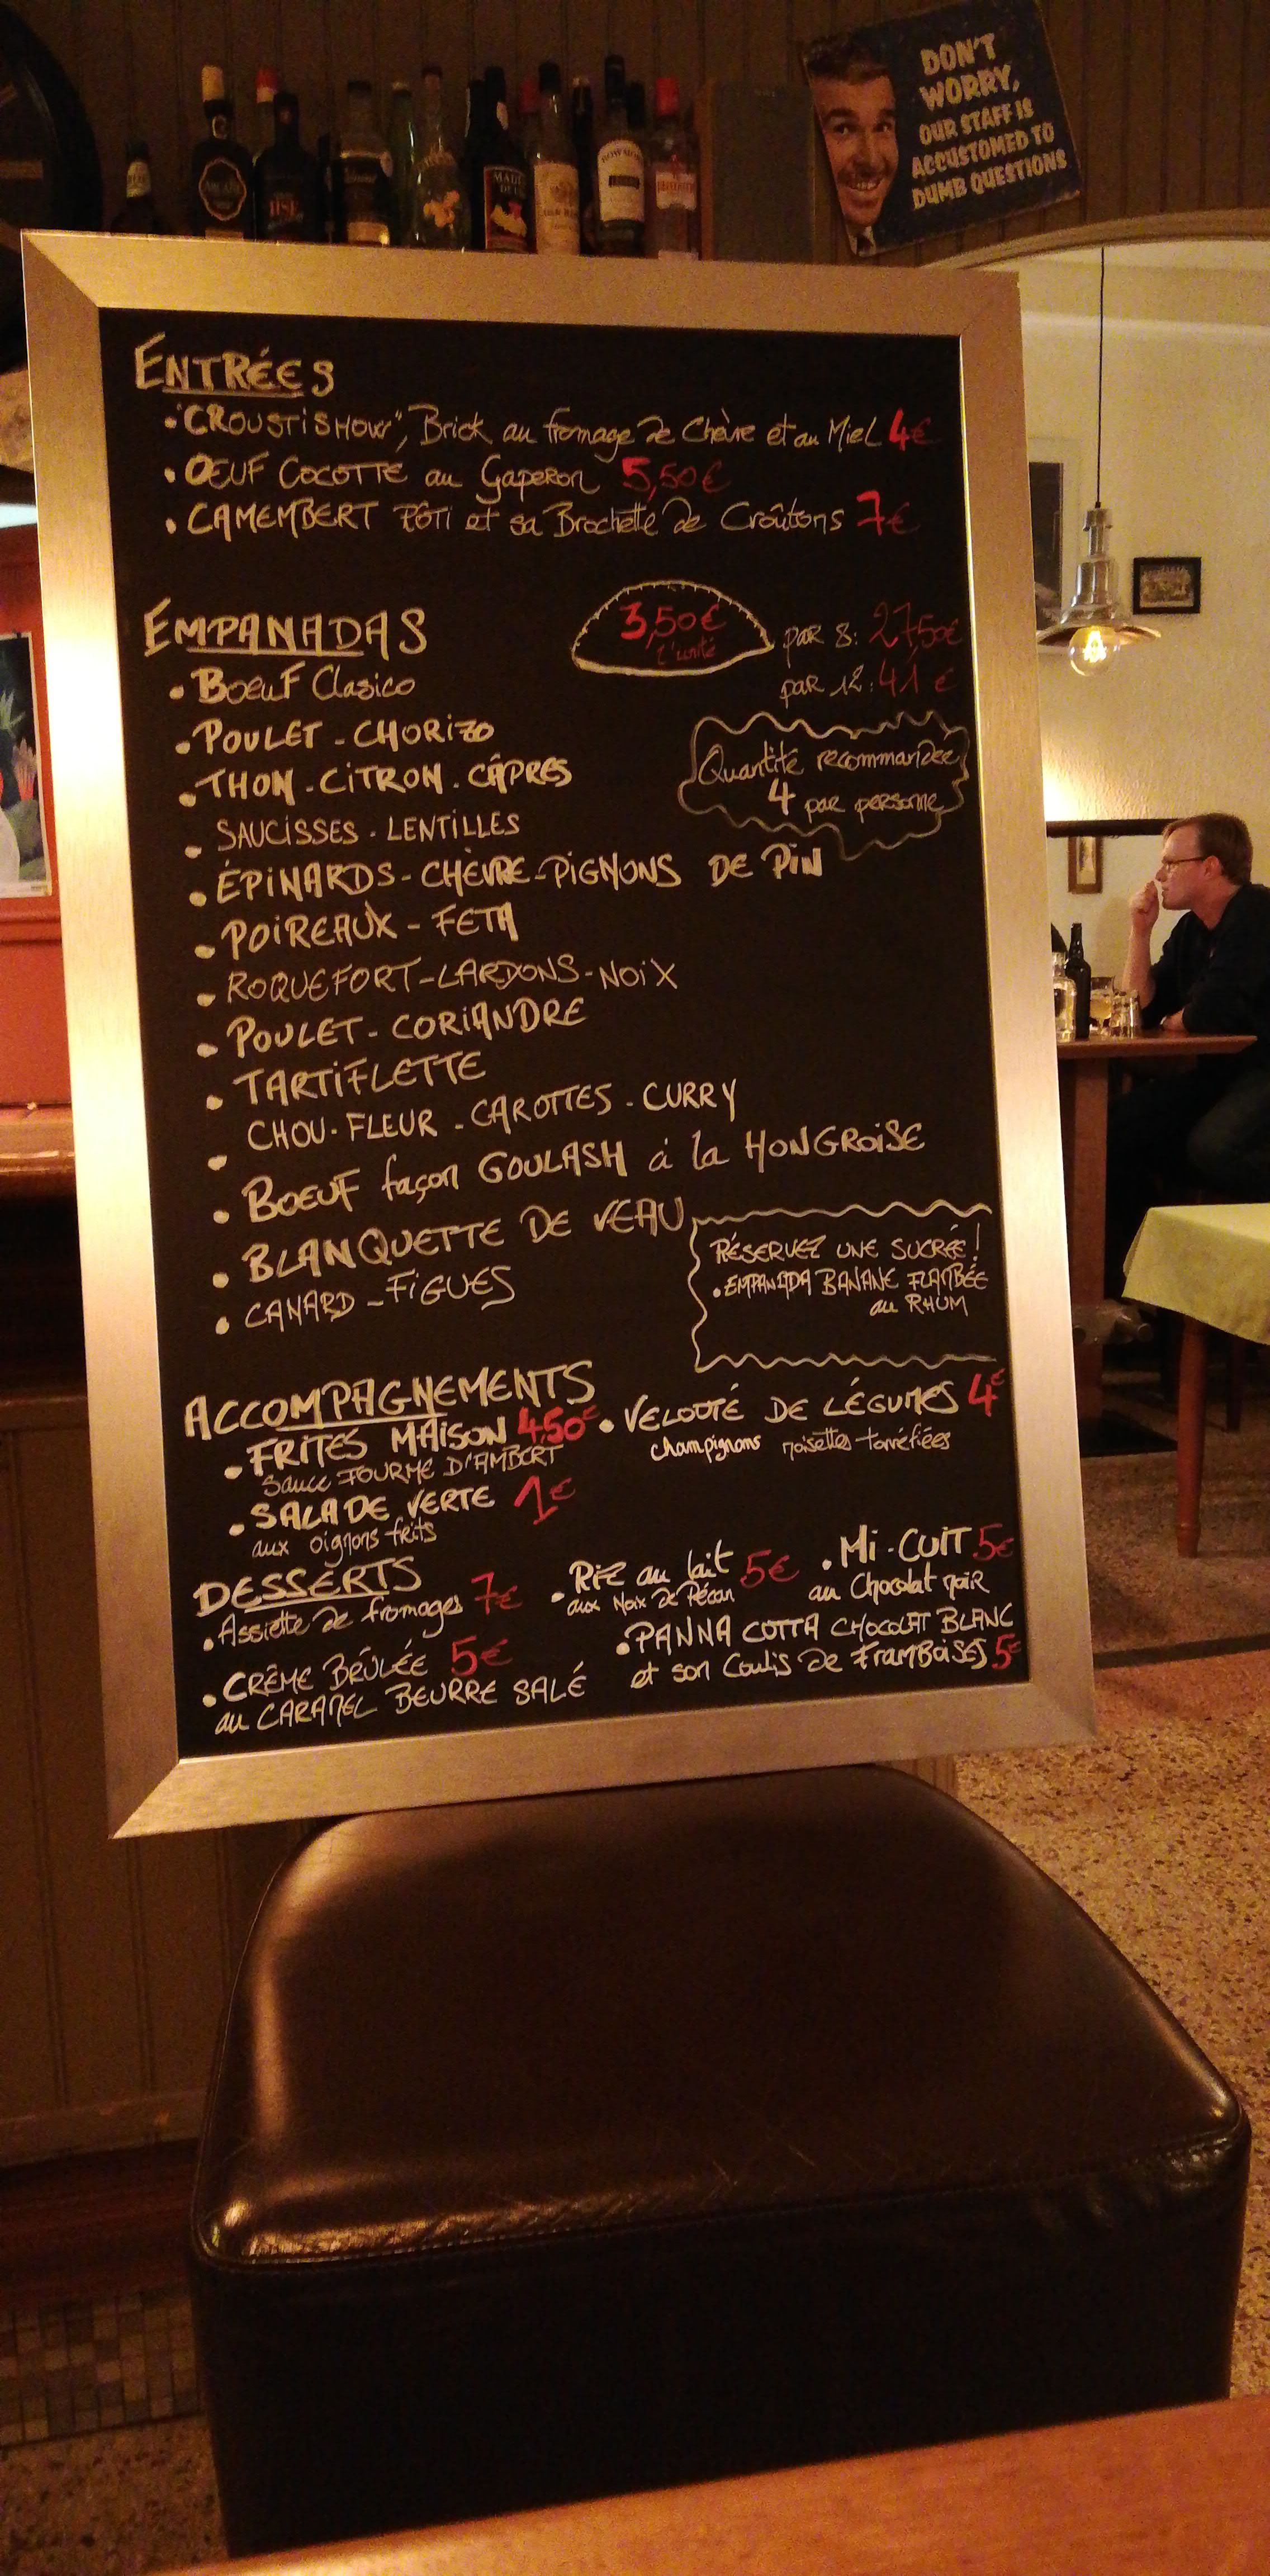 DON'T
WORRY,
OUR STAFF IS
ACCUSTOMED TO
DUMB QUESTIONS
HSE
BOWMORE
ENTRÉES
• "CROUSTISHOW", Brick au fromage de Chèvre et au Miel 4€
• OEUF COCOTTE au Gaperon 5,50€
• CAMEMBERT RÔTI et sa Brochette de Croûtons 7€
EMPANADAS
3,50€
l'unité
par 8: 27,50€
par 12: 41€
Quantité recommandée
4 par personne
• BOEUF Clasico
• POULET - CHORIZO
• THON - CITRON - CÂPRES
• SAUCISSES - LENTILLES
• ÉPINARDS - CHÈVRE - PIGNONS DE PIN
• POIREAUX - FETA
• ROQUEFORT - LARDONS - NOIX
• POULET - CORIANDRE
• TARTIFLETTE
• CHOU-FLEUR - CAROTTES - CURRY
• BOEUF façon GOULASH à la HONGROISE
• BLANQUETTE DE VEAU
• CANARD - FIGUES
RÉSERVEZ UNE SUCRÉE!
• EMPANADA BANANE FLAMBÉE
au RHUM
ACCOMPAGNEMENTS
• FRITES MAISON 4,50€
Sauce FOURME D'AMBERT
• SALADE VERTE 1€
aux oignons frits
• VELOUTÉ DE LÉGUMES 4€
champignons noisettes torréfiées
DESSERTS
• Assiette de fromages 7€
• CRÊME BRÛLÉE 5€
au CARAMEL BEURRE SALÉ
• RIZ au lait 5€
aux Noix de Pécan
• MI-CUIT 5€
au Chocolat noir
• PANNA COTTA CHOCOLAT BLANC
et son Coulis de FRAMBOISES 5€